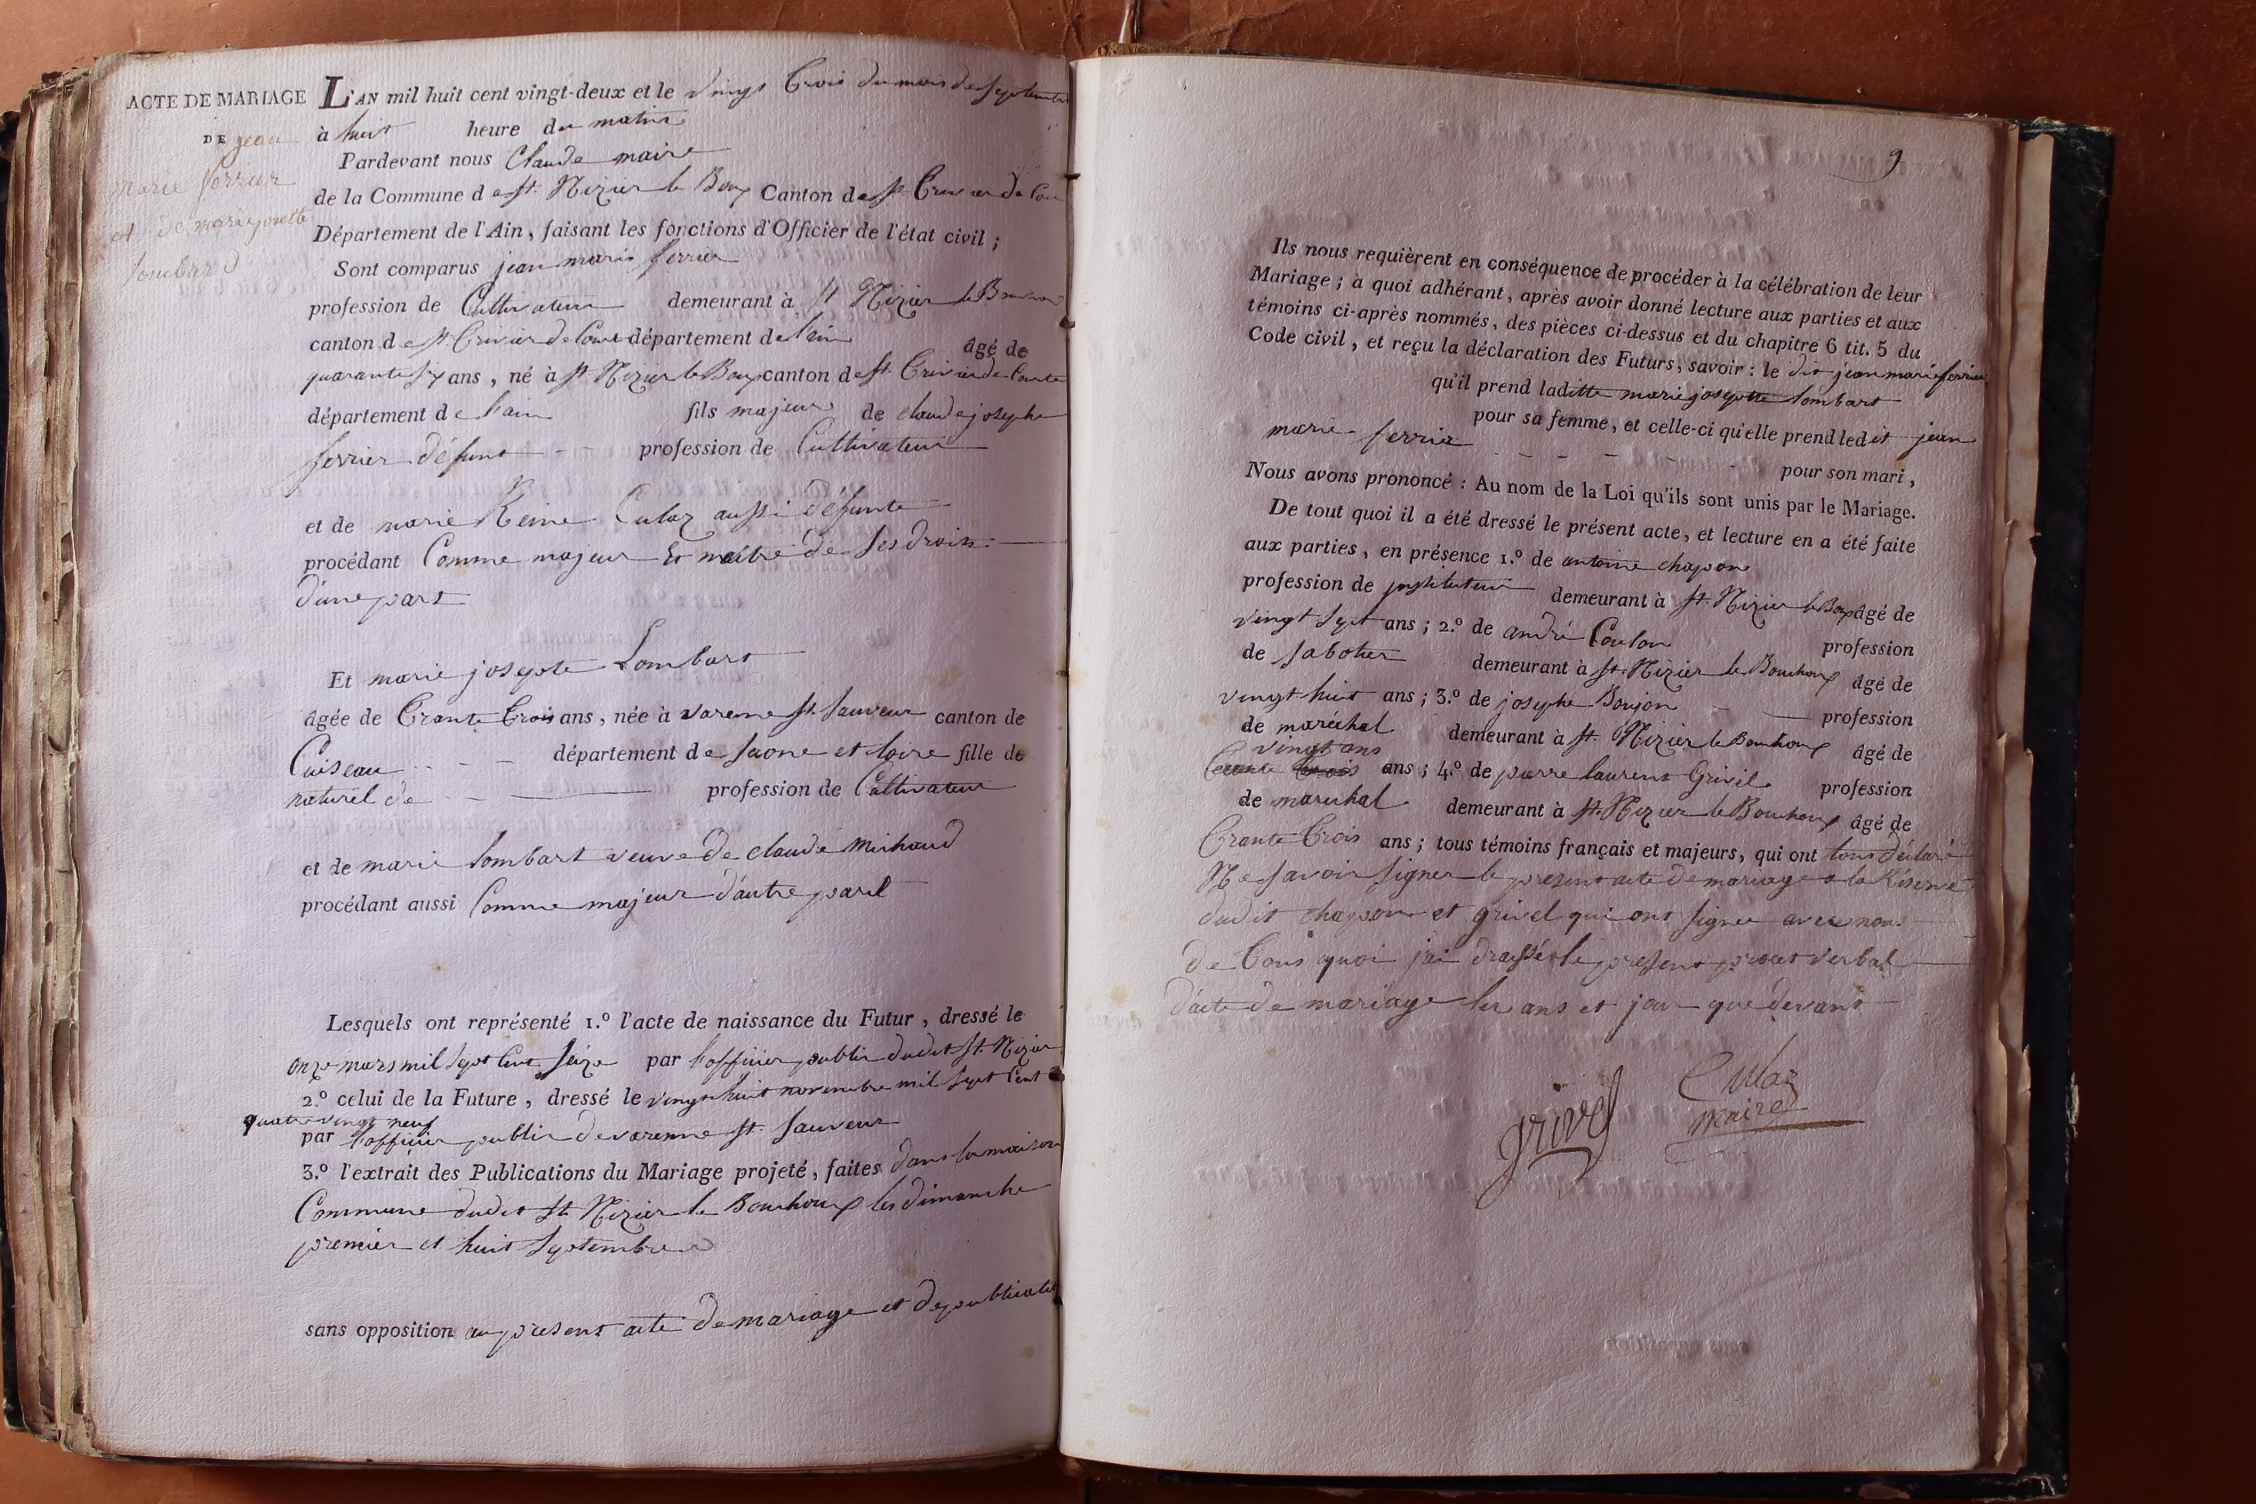 ACTE DE MARIAGE
DE jean
marie ferrier
et de marie josette
lombard
L'AN mil huit cent vingt-deux et le vingt trois du mois de septembre
à huit heure du matin
Pardevant nous Claude maire
de la Commune de st. Nizier le Boux Canton de st. Trivier de Cou
Département de l'Ain, faisant les fonctions d'Officier de l'état civil;
Sont comparus jean marie ferrier
profession de Cultivateur demeurant à st Nizier le
canton de st Trivier de Courte département de lain âgé de
quarante six ans, né à st Nizier le Boux canton de st. Trivier de Courte
département de lain fils majeur de claude josephe
ferrier défunt - - profession de Cultivateur
et de marie Reine Culaz aussi défunte
procédant Comme majeur et maitre de ses droits
d'une part
Et marie josepte Lombart
âgée de Trante trois ans, née à varenne st. sauveur canton de
Cuiseau - - - département de saone et loire fille de
naturel de - profession de Cultivateur
et de marie lombart veuve de claude michaud
procédant aussi Comme majeur d'autre part
Lesquels ont représenté 1.º l'acte de naissance du Futur, dressé le
onze mars mil sept cent seize par l'officier publir dudit st. Nizier
2.º celui de la Future, dressé le vingt huit novembre mil sept cent
quatre vingt neuf
par l'officier publir de varenne st. sauveur
3.º l'extrait des Publications du Mariage projeté, faites dans la maison
Commune dudit st Nizier le Bouchoux les dimanche
premier et huit septembre
sans opposition au present acte de mariage et de publication
9
Ils nous requièrent en conséquence de procéder à la célébration de leur
Mariage; à quoi adhérant, après avoir donné lecture aux parties et aux
témoins ci-après nommés, des pièces ci-dessus et du chapitre 6 tit. 5 du
Code civil, et reçu la déclaration des Futurs, savoir: le dit jean marie ferrier
qu'il prend laditte marie josepte lombart
pour sa femme, et celle-ci qu'elle prend ledit jean
marie ferrier - - - - - - pour son mari,
Nous avons prononcé: Au nom de la Loi qu'ils sont unis par le Mariage.
De tout quoi il a été dressé le présent acte, et lecture en a été faite
aux parties, en présence 1.º de antoine chapon
profession de jnstituteur demeurant à st. Nizier le Boux âgé de
vingt sept ans; 2.º de andré Coulon profession
de sabotier demeurant à st. Nizier le Bouchoux âgé de
vingt huit ans; 3.º de josephe Boujon - - profession
de marechal demeurant à st. Nizier le Bouchoux âgé de
vingt ans
Trante trois ans; 4.º de pierre laurent Grivel profession
de marechal demeurant à st. Nizier le Bouhoux âgé de
Trante trois ans; tous témoins français et majeurs, qui ont tous déclaré
Ne savoir signer le present acte de mariage a la Réserve
dudit chapon et grivel qui ont signée avec nous
de Tous quoi jai draissé le present procet verbal
d'acte de mariage les ans et jour que devant
Culaz
grivel maire